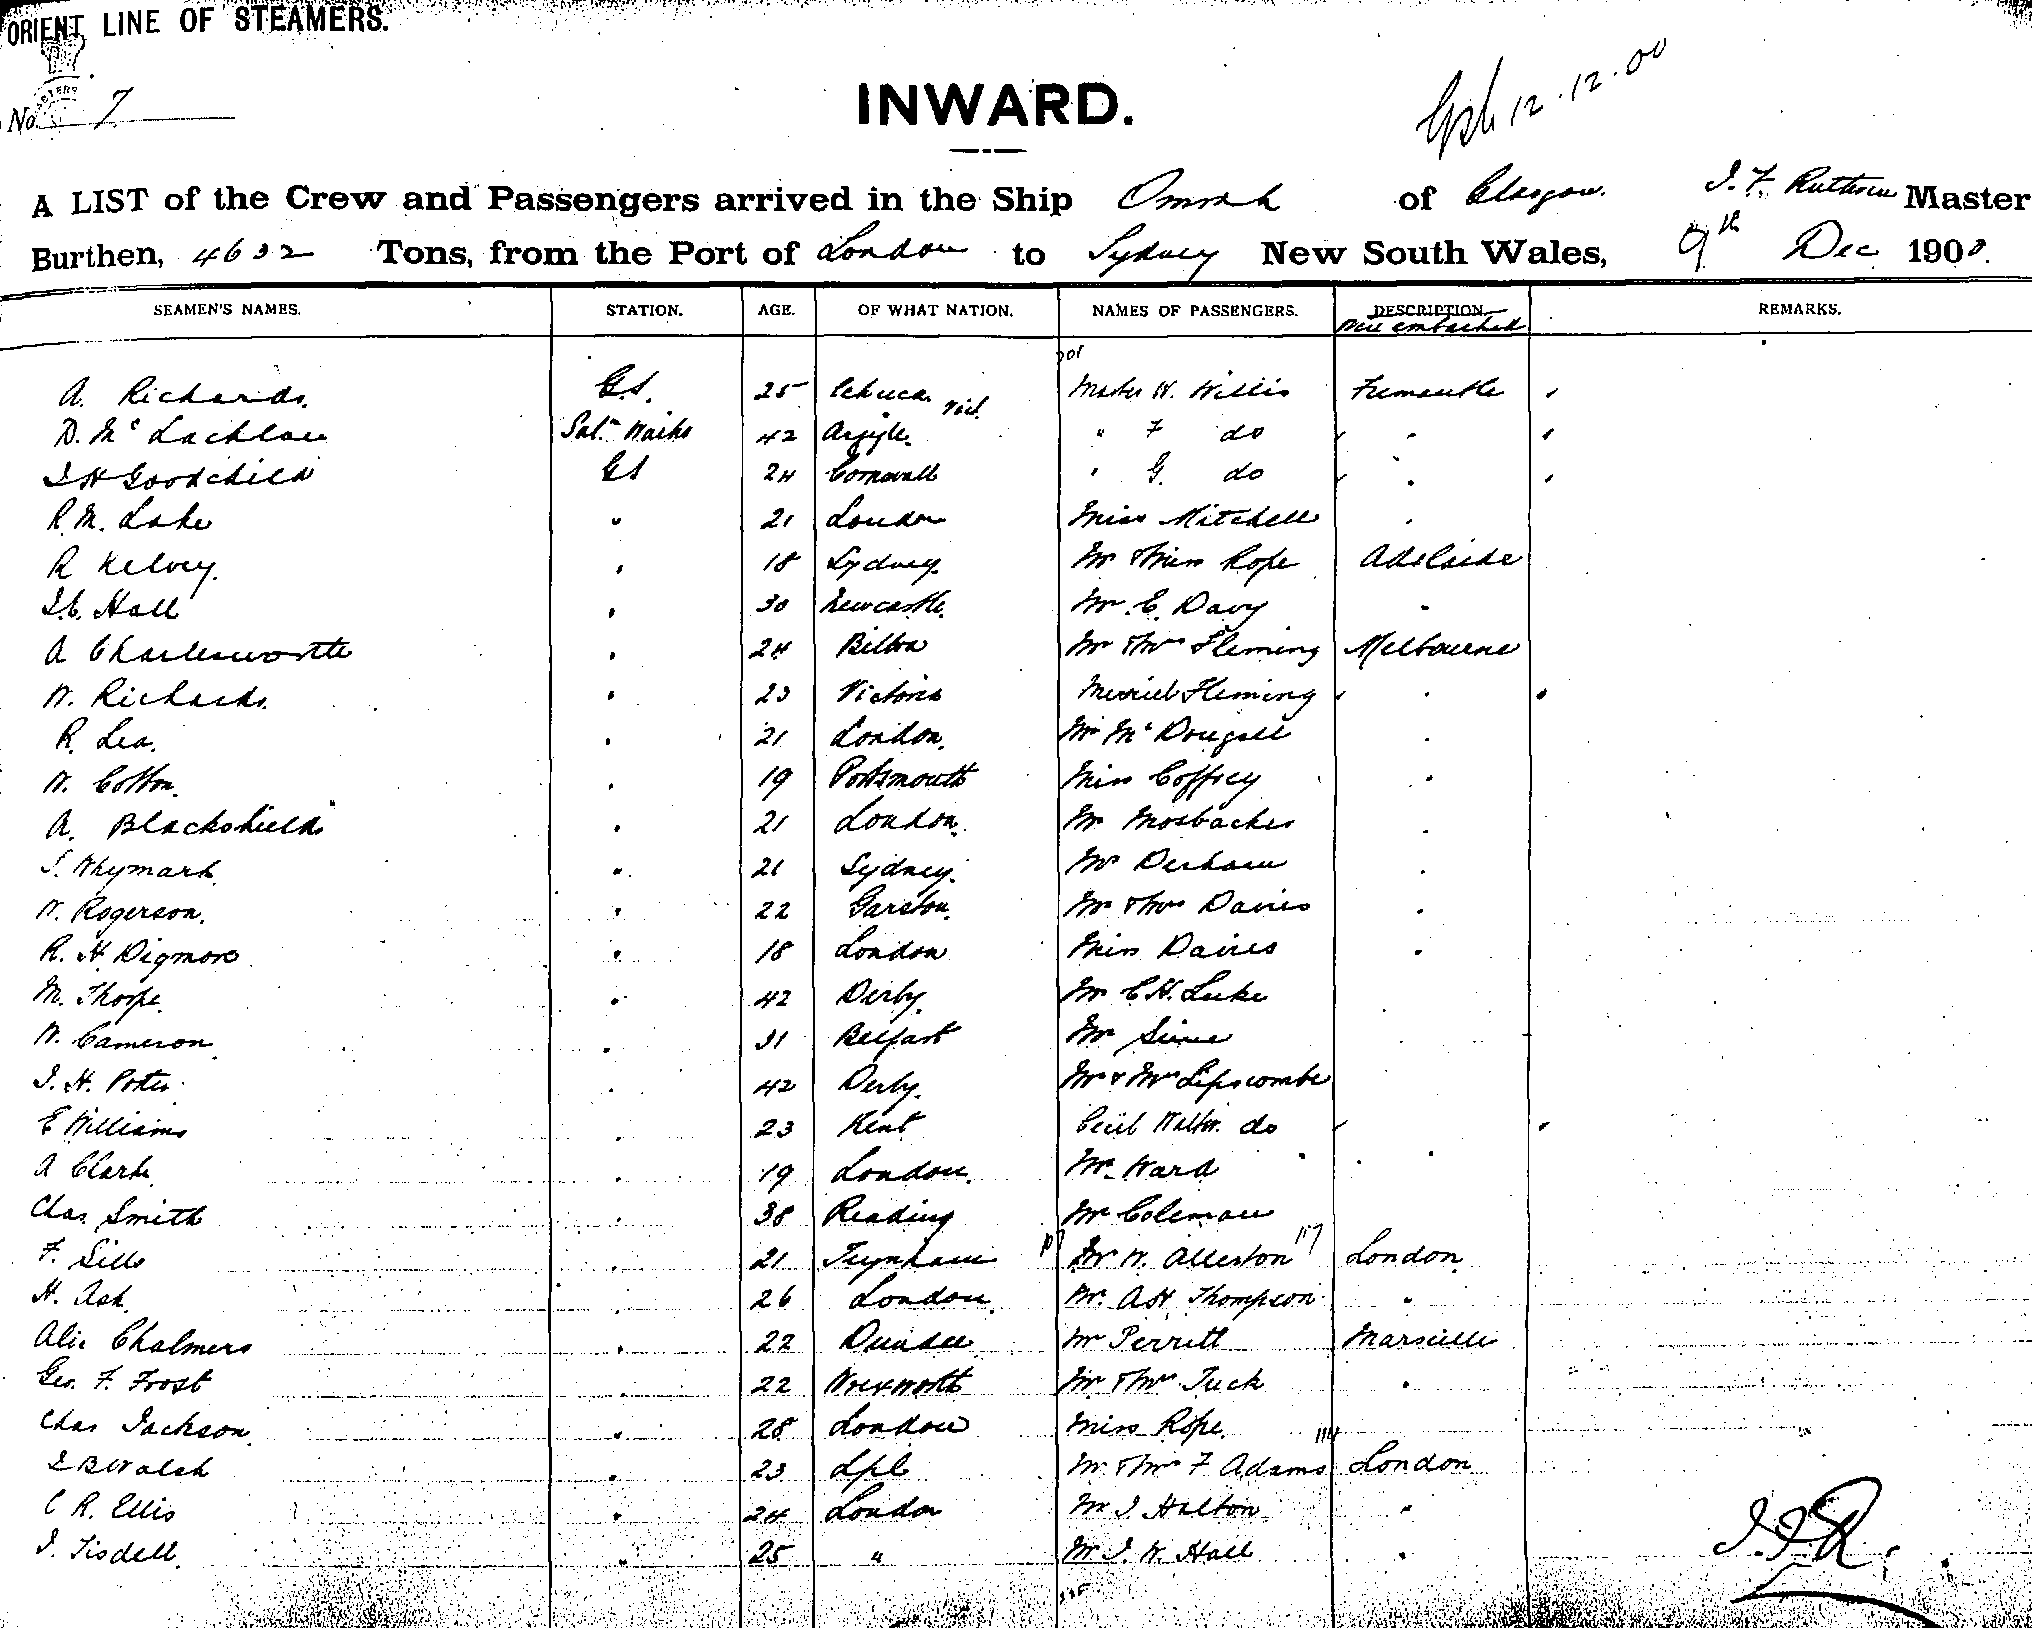 ORIENT LINE OF STEAMERS.
No. 7
INWARD.
12.12.00
A LIST of the Crew and Passengers arrived in the Ship Omrah of Glasgow. J. F. Ruthven Master
Burthen, 4632 Tons, from the Port of London to Sydney New South Wales, 9th Dec 1900.
SEAMEN'S NAMES. STATION. AGE. OF WHAT NATION. NAMES OF PASSENGERS. DESCRIPTION REMARKS.
embarked
A. Richards. G.S. 25 Echuca Vict. Master W. Willis Fremantle
D. Mc Lachlan Saln Waiter 42 Argyle. " F do "
J H Goodchild GS 24 Cornwall " G. do "
R. M. Lake " 21 London Miss Mitchell "
R Kelvey. " 18 Sydney. Mr & Miss Rope Adelaide
J. C. Hall " 30 Newcastle. Mr. C. Davy "
A Charlesworth " 24 Bilton Mr & Mrs Fleming Melbourne
W. Richards. " 23 Victoria Fleming "
R. Lea. " 21 London. Mr Mc Dougall "
W. Cotton. " 19 Portsmouth Miss Coffrey "
A. Blackshields " 21 London. Mr Mosbacher "
S. Whymark. " 21 Sydney. Mr Derham "
W. Rogerson. " 22 Garston. Mr & Mrs Davies "
R. H. Digmore " 18 London Miss Davies "
M. Thorpe. " 42 Derby. Mr C. H. Luke
W. Cameron " 31 Belfast Mr Sime
J. H. Porter " 42 Derby. Mr & Mrs Lipscombe
E Williams " 23 Kent Cecil Walter do
A Clark " 19 London. Mr. Ward "
Chas Smith " 38 Reading Mr Coleman
F. Sills " 21 Teynham Mr W. Allerton 117 London
H. Ash. " 26 London. Mr. A H Thompson "
Alic Chalmers " 22 Dundee Mr Perrett Marseille
Geo. F. Frost " 22 Mr & Mrs Tuck "
Chas Jackson. " 28 London Miss Rope.
J B Walsh " 23 Lpl Mr & Mrs F Adams London
C R. Ellis " 24 London Mr J Halton "
J. Tisdell. " 25 " Mr J. W. Hall "
J.F.R.